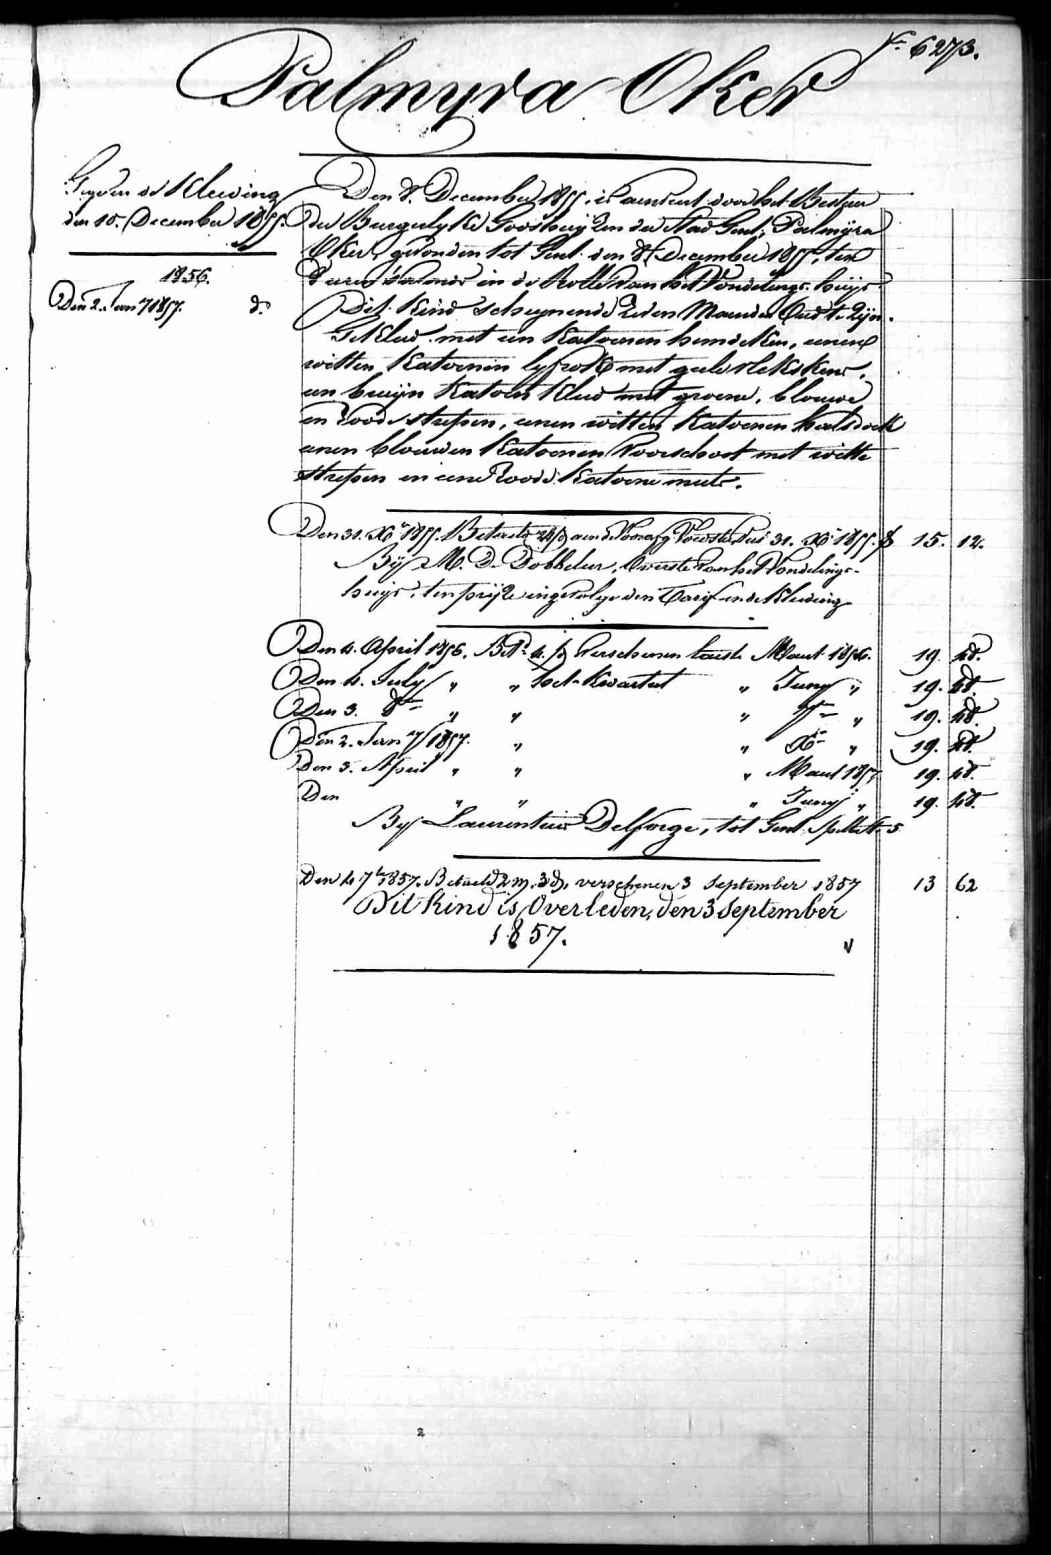 Fº 6273.
Palmyra Oker
Gegeven de Kleeding
den 10. December 1855.
1856.
Den 2. Jan.y 1857. do
Den 8. December 1855, is aenveert door het Bestuer
der Burgerlyke Godshuyzen der Stad Gent, Palmÿra
Oker, gevonden tot Gent den 8 December 1855, ten
uren s'avonds in de Rolle van het Vondelings-huys
Dit Kind schynende zeven Maenden Oud te zÿn.
Gekleed met een Katoenen hemdeken, eenen
witten Katoenen lyfrok met gele vlekskens,
een bruÿn Katoen Kleed met groene, blauwe
en Roode strepen, eenen witten Katoenen halsdoek
eenen blauwen Katoenen Voorschoot met witte
strepen en eene Roode Katoene muts.
Den 31. Xber 1855. Betaeld 31. Xber 1855. 15. 12.
Bÿ M. De Dobbeleer, Overste van het Vondelings-
huys, ten prÿze ingevolge den Tarif en de Kleeding
Den 4. April 1856. Bet. verschenen laeste Maert 1856. 19. 48.
Den 4. July " " het Kwartael " Juny " 19. 48.
Den 3. 8ber " " " 7ber " 19. 48.
Den 2. Jan.y 1857. " " Xber " 19. 48.
Den 3. April " " " Maert 1857 19. 48.
Den " " " Juny " 19. 48.
By Laurentius Delforge, tot Gent, 5
Den 4 7ber 1857. Betaeld 2 m. 3 d. verschenen 3 September 1857 13 62
Dit kind is Overleden, den 3 September
1857.
2